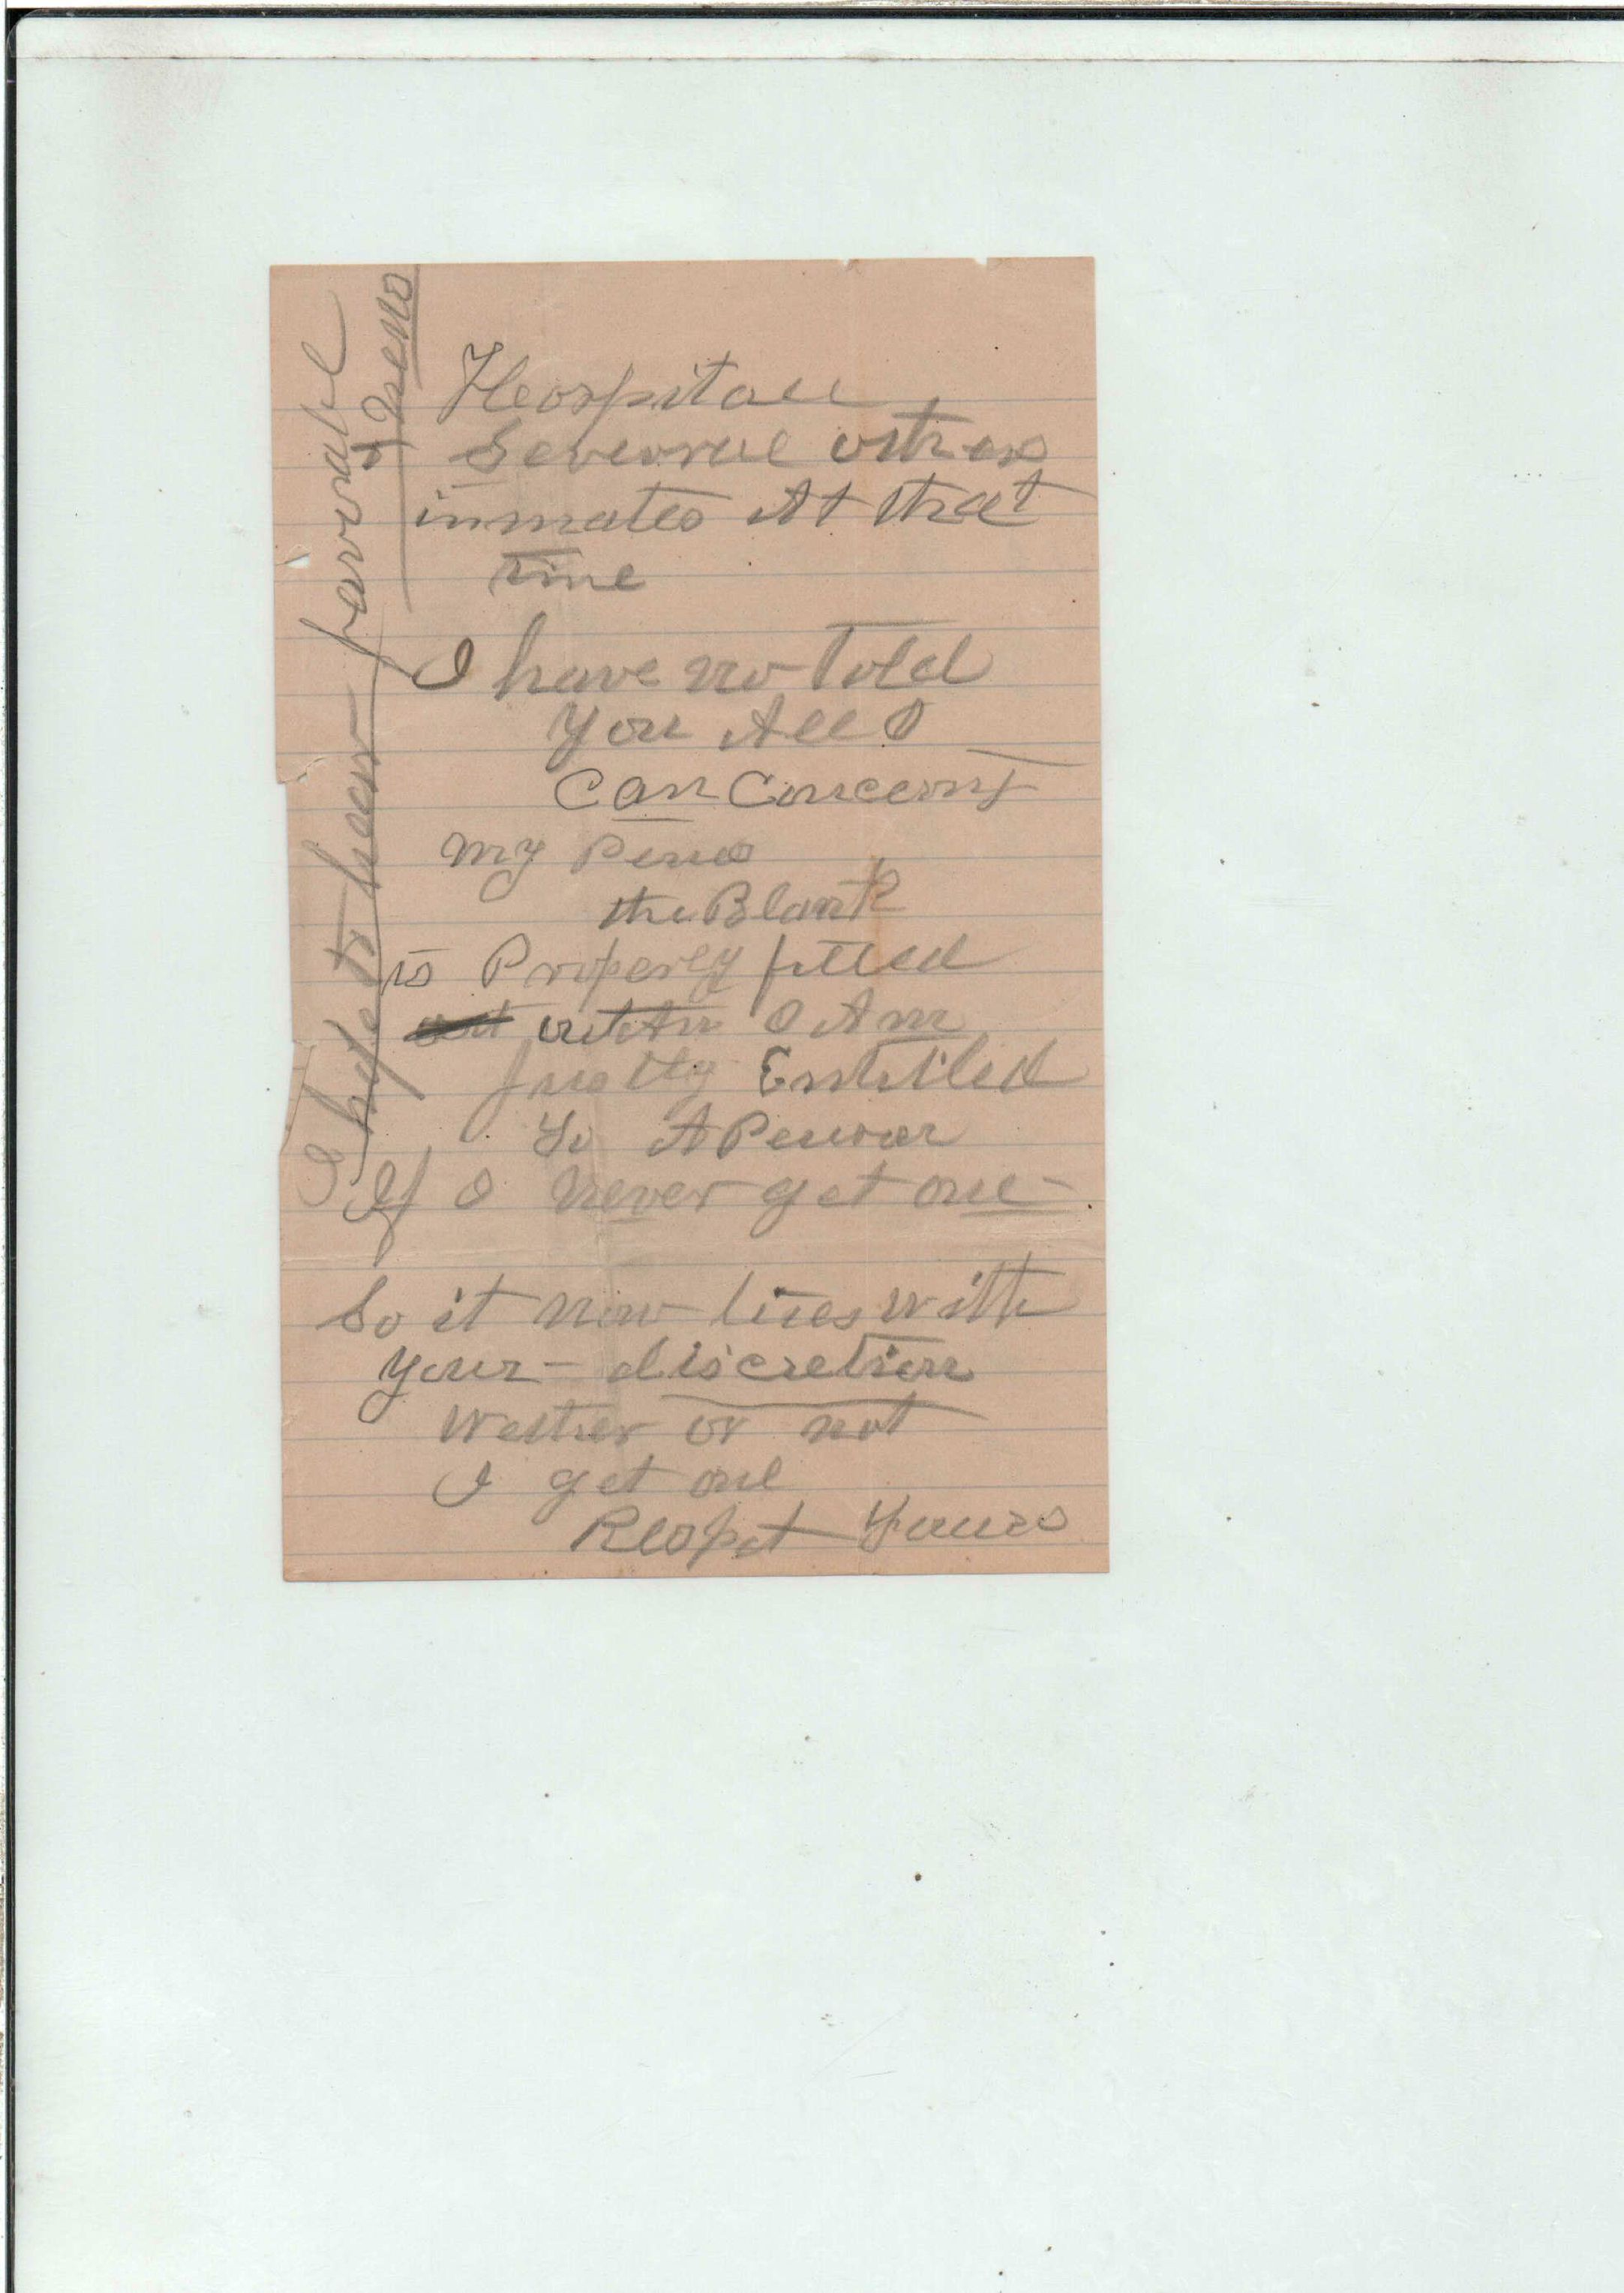 Hospitall
Several others
inmates At that
time
I have no Told
You All I
can Concerng
my Pens
the Blank
is Properly filled
out I Am
justly Entitled
To A Pension
If I Never get one
So it now lies with
your - discretion
wether or not
I get one
Respct Yours
I hope to hear favorabl
News